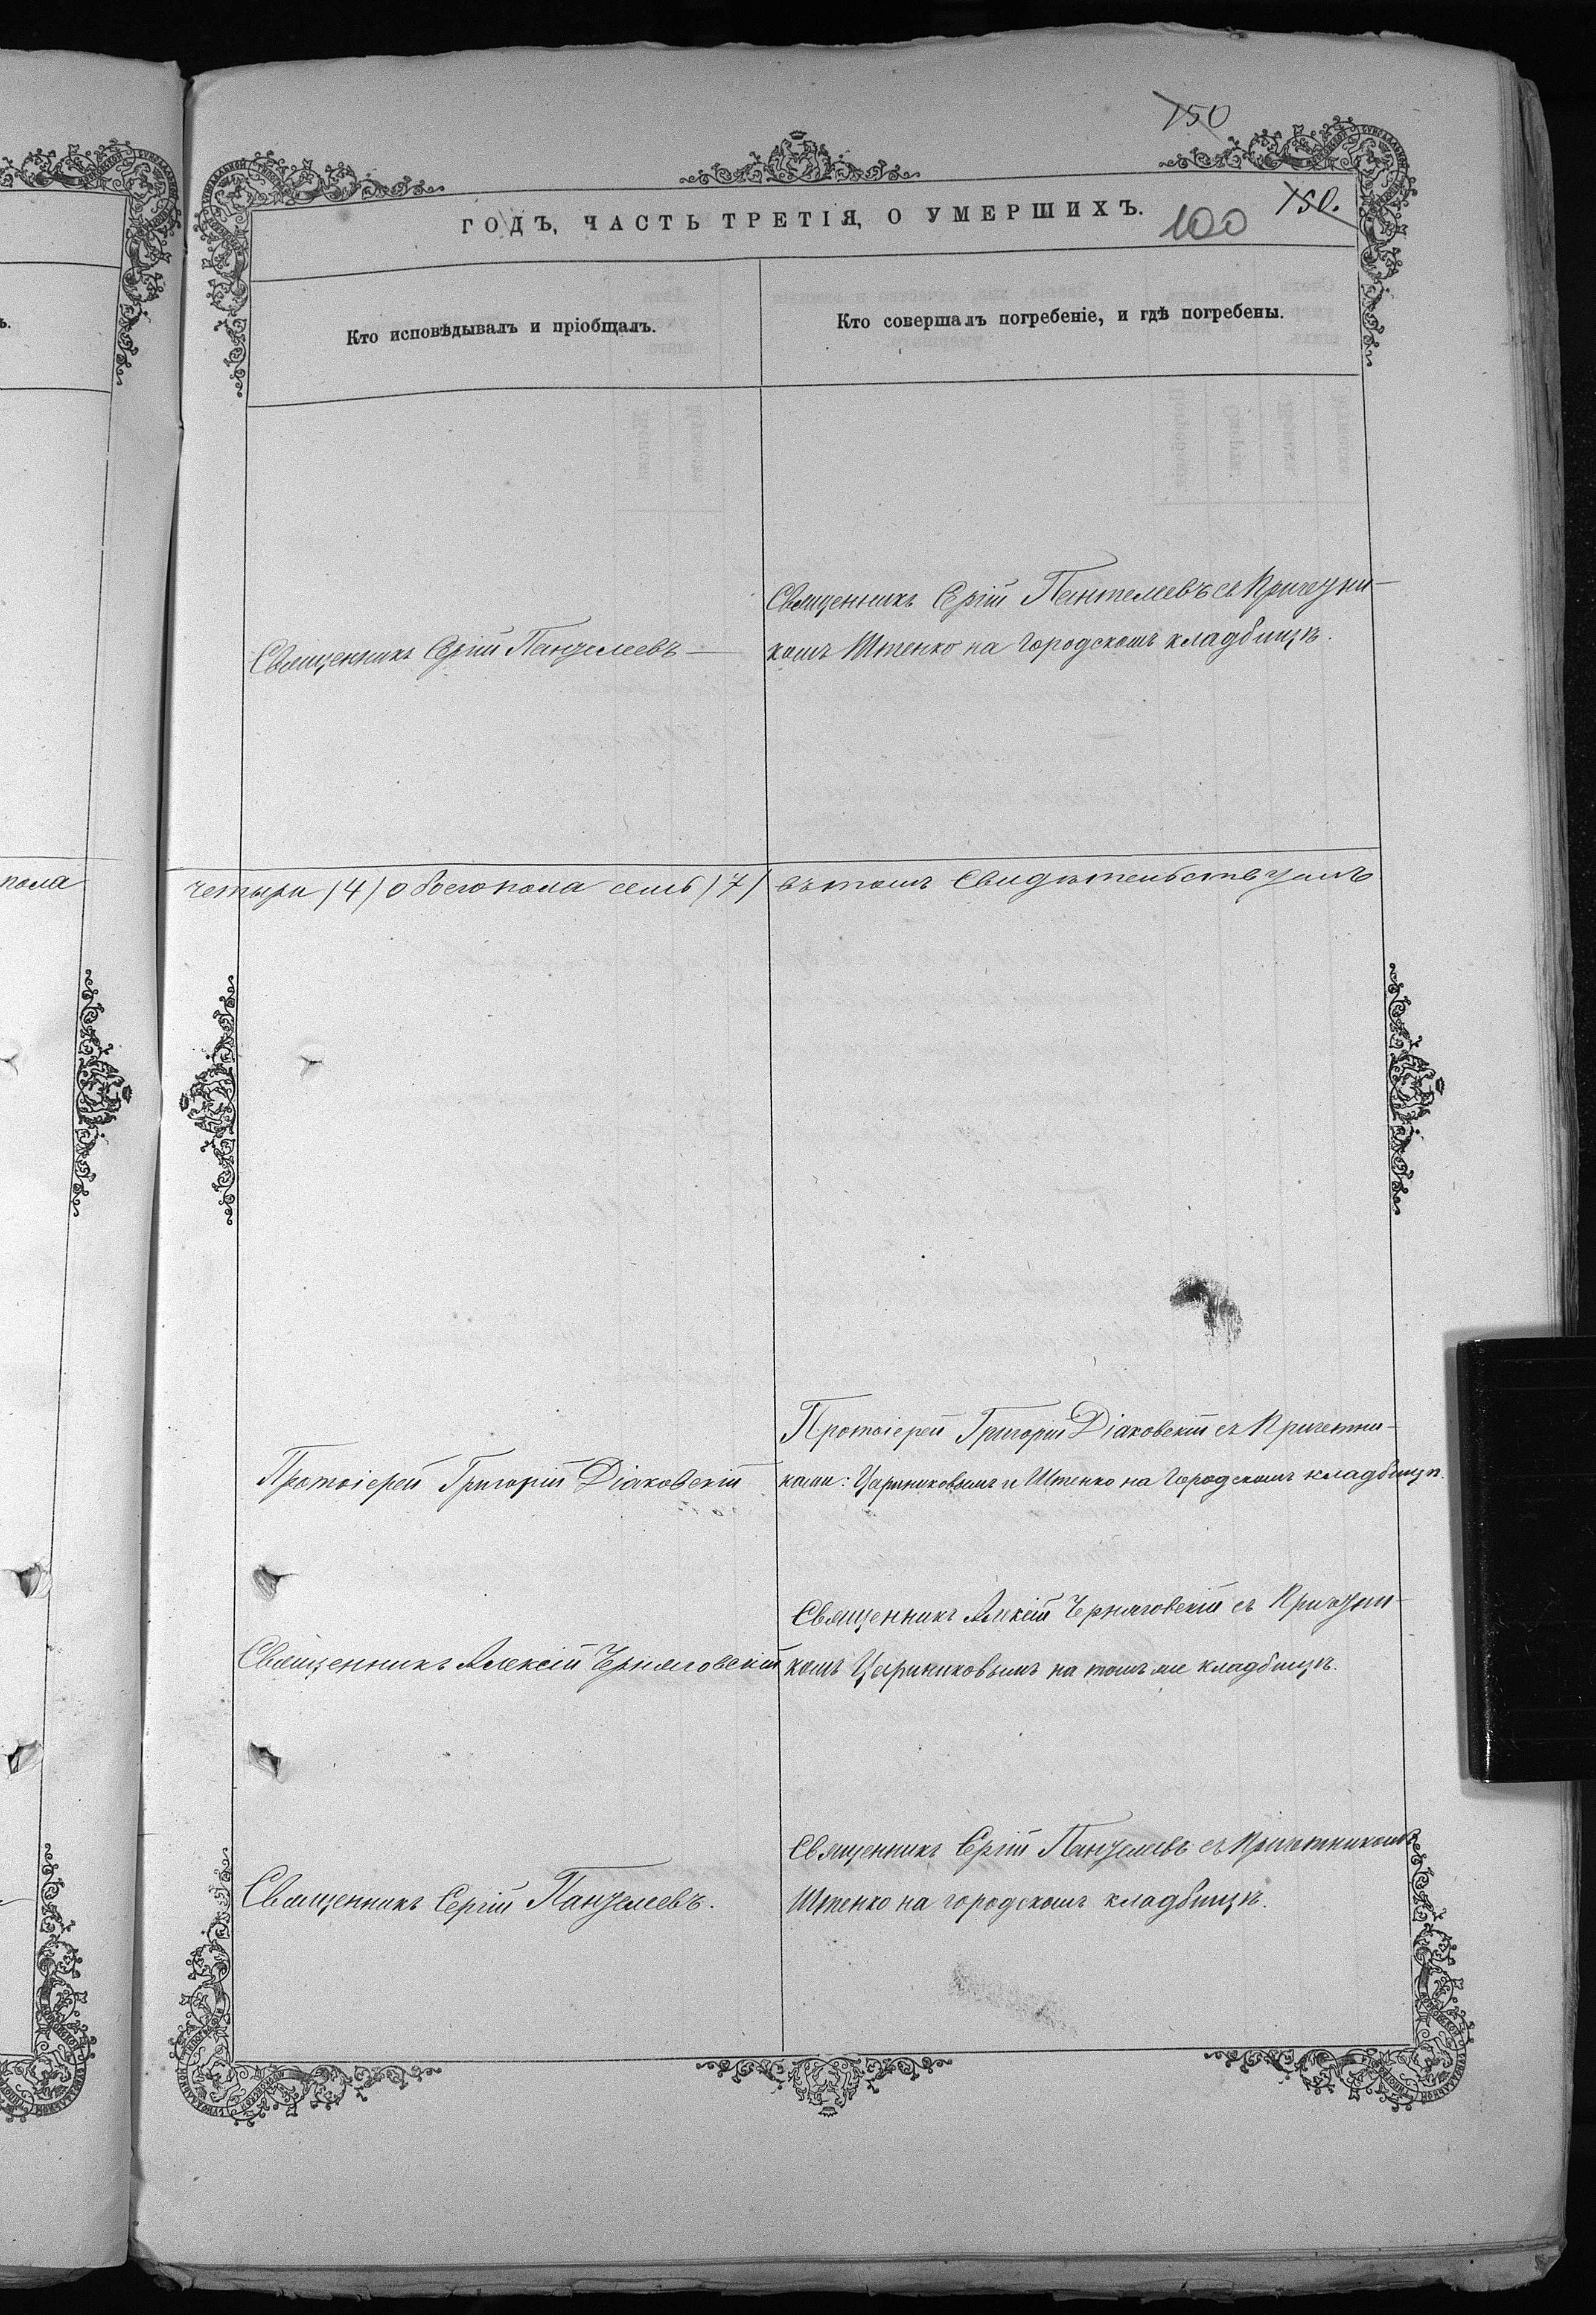 150
ГОДЪ, ЧАСТЬ ТРЕТІЯ, О УМЕРШИХЪ.
100
150.
Кто исповѣдывалъ и пріобщалъ.
Кто совершалъ погребеніе, и гдѣ погребены.
Священникъ Сергій Пантелеевъ
Священникъ Сергій Пантелеевъ съ Причетни-
комъ Штенко на городскомъ кладбищѣ.
пола
четыри (4) обоего пола семь (7) въ томъ свидѣтельствуемъ
Протоіерей Григорій Діаковскій
Протоіерей Григорій Діаковскій съ Причетни-
ками: Цариниковымъ и Штенко на городскомъ кладбищѣ.
Священникъ Алексій Черняговскій
Священникъ Алексій Черняговскій съ Причетни-
комъ Цариниковымъ на томъ же кладбищѣ.
Священникъ Сергій Пантелеевъ.
Священникъ Сергій Пантелеевъ съ Причетникомъ
Штенко на городскомъ кладбищѣ.